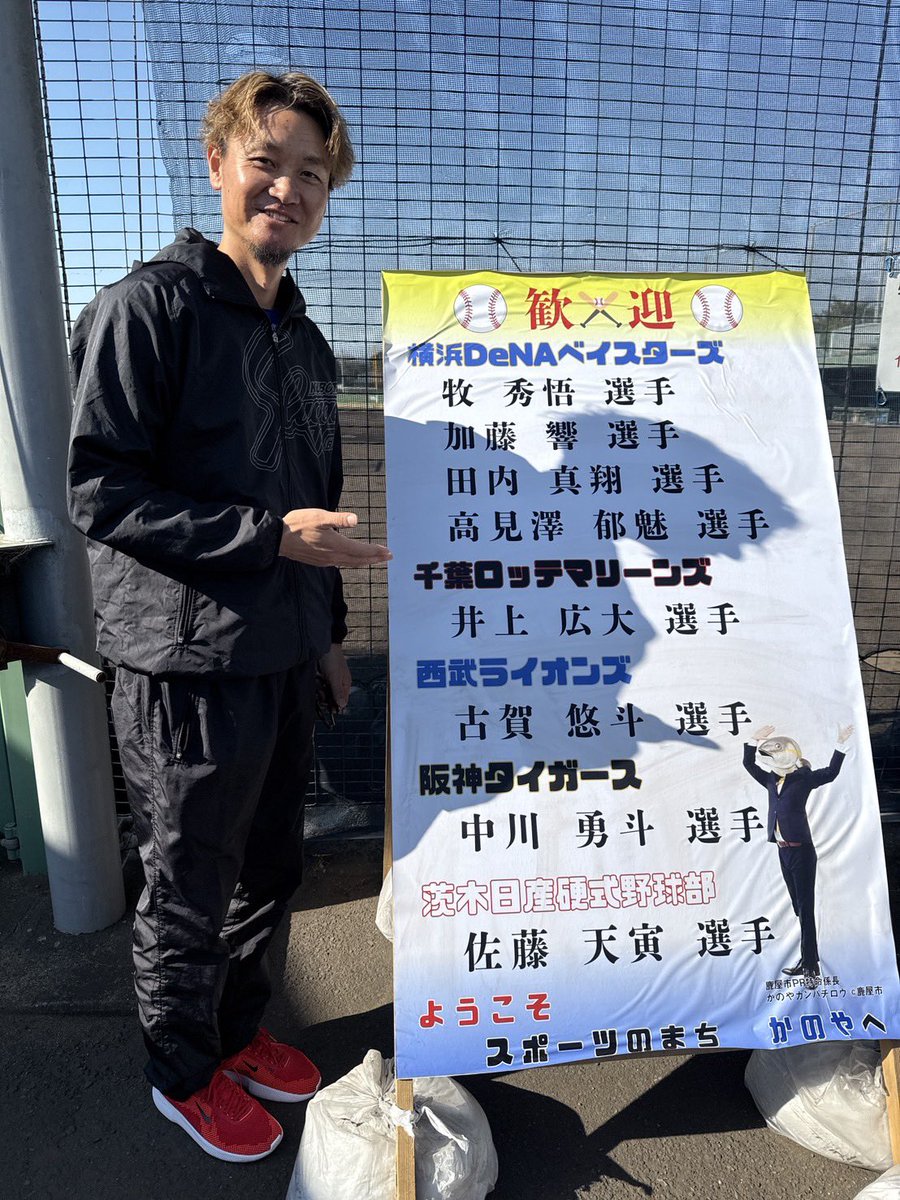 歓迎
横浜DeNAベイスターズ
牧 秀悟 選手
加藤 響 選手
田内 真翔 選手
高見澤 郁魅 選手
千葉ロッテマリーンズ
井上 広大 選手
西武ライオンズ
古賀 悠斗 選手
阪神タイガース
中川 勇斗 選手
茨木日産硬式野球部
佐藤 天寅 選手
鹿屋市PR特命係長
かのやカンパチロウ ©鹿屋市
ようこそ
スポーツのまち かのやへ